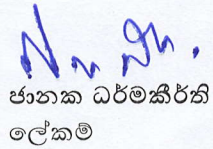 ජානක ධර්මකීර්ති
ලේකම්